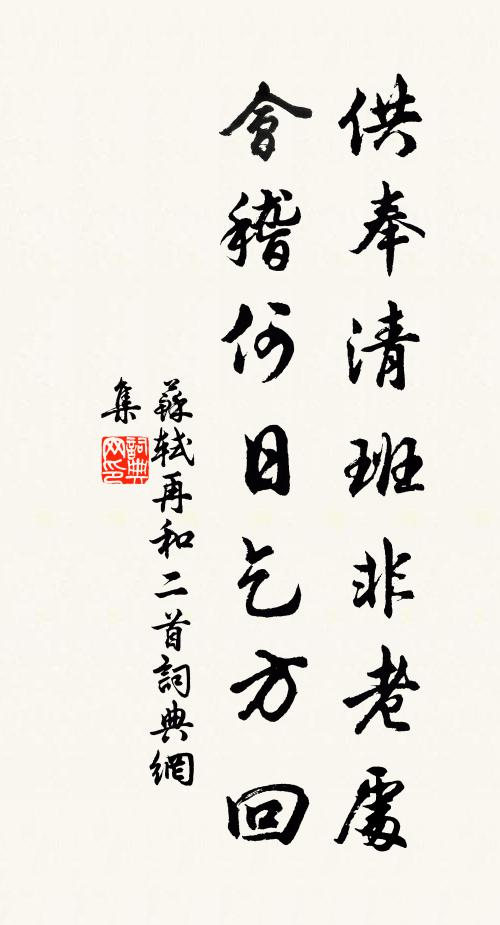 供奉清班非老處
會稽何日乞方回
蘇軾再和二首詞典網
集
詞典
网印